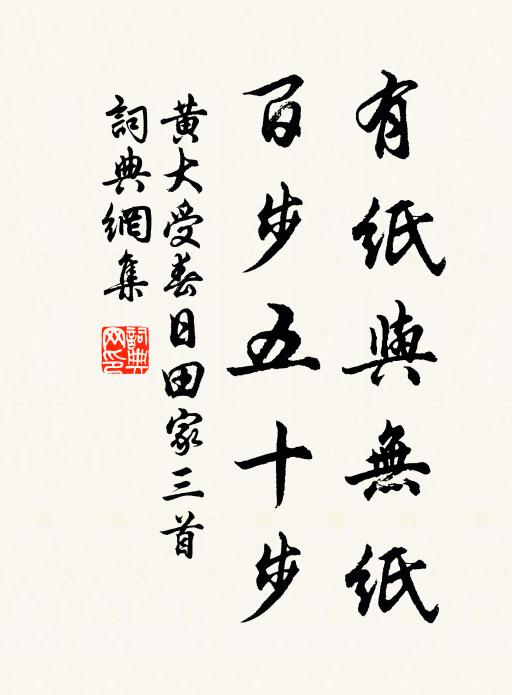 有紙與無紙
百步五十步
黃大受春日田家三首
詞典網集
詞典網印